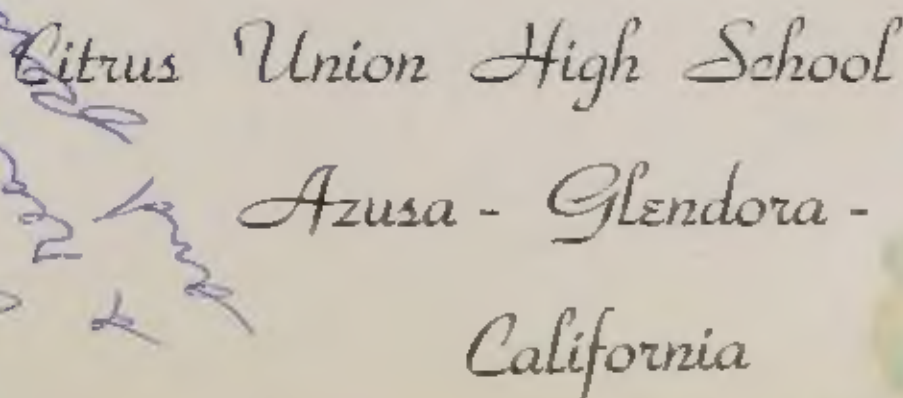 Citrus Union High School
Azusa - Glendora -
California